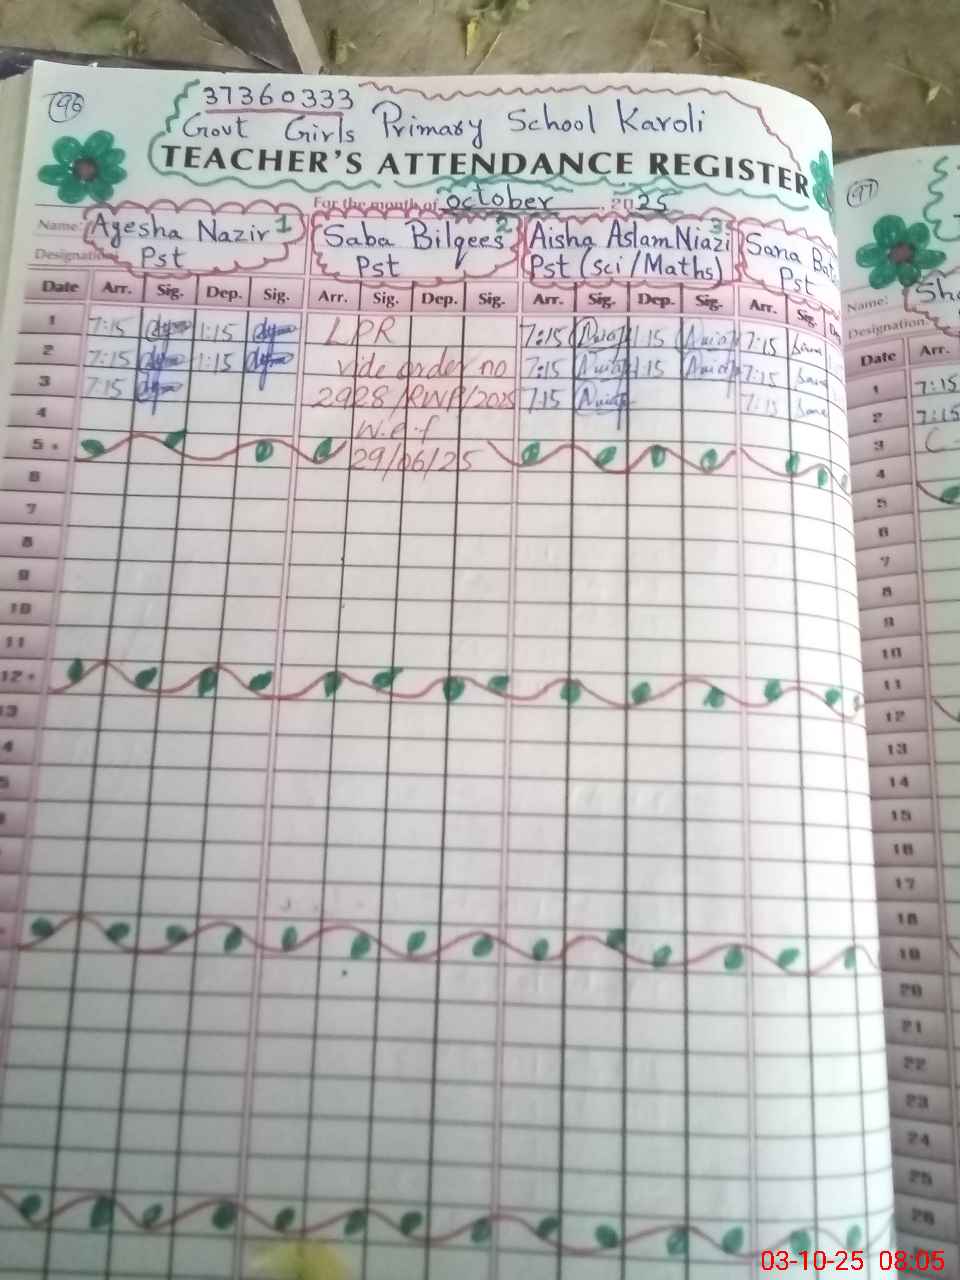 96
37360333
Govt Girls Primary School Karoli
TEACHER'S ATTENDANCE REGISTER
For the month of october 2025
Name: Ayesha Nazir 1 Saba Bilqees 2 Aisha Aslam Niazi 3 Sana
Designation Pst Pst Pst (Sci/Maths) Pst
Date Arr. Sig. Dep. Sig. Arr. Sig. Dep. Sig. Arr. Sig. Dep. Sig. Arr. Sig.
1 7:15 1:15 LPR 7:15 1:15 7:15
2 7:15 1:15 vide order no 7:15 1:15 7:15
3 7:15 2928/RWP/2025 7:15 7:15
4 w.e.f
5 29/06/25
6
7
8
9
10
11
12
13
97
Name:
Designation:
Date Arr.
1 7:15
2 7:15
3
4
5
6
7
8
9
10
11
12
13
14
15
16
17
18
19
20
21
22
23
24
25
26
03-10-25 08:05